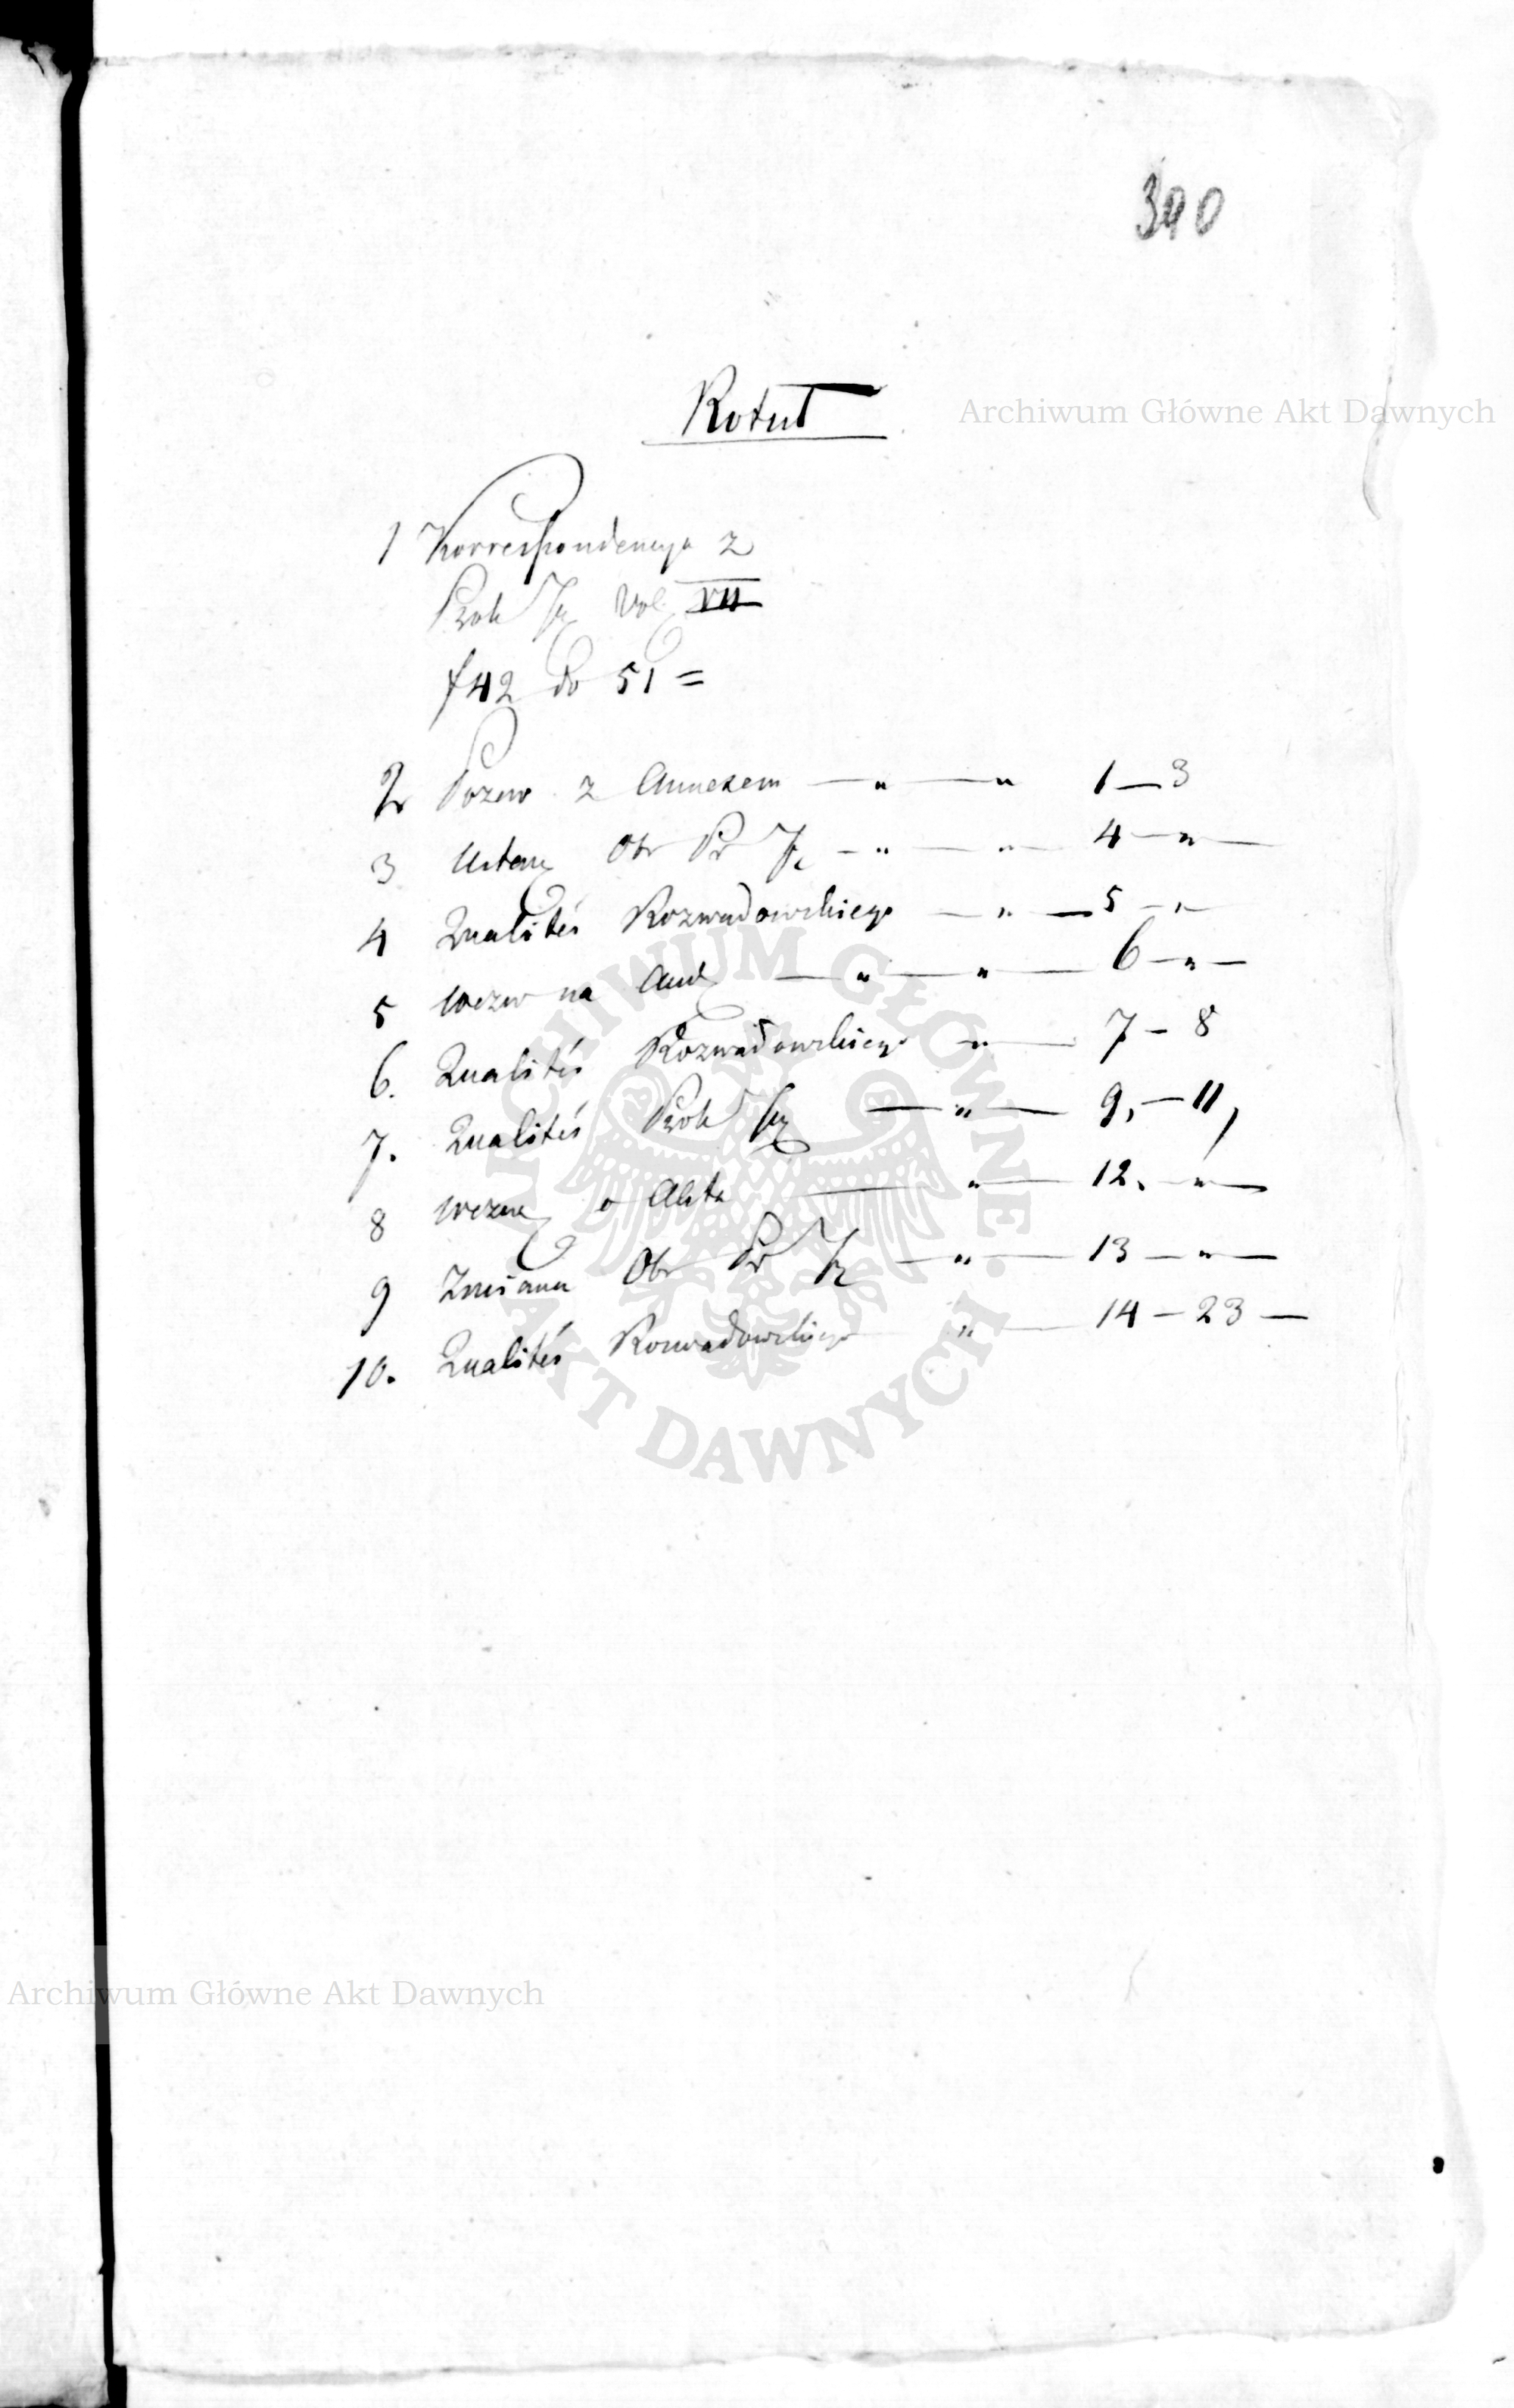 390
Rotuł
Archiwum Główne Akt Dawnych
1 Korrespondencya z
Prok Jlz Vol. VII
f 42 do 51 =
2 Pozew z Annexem — " — " 1 — 3
3 Ustan Obr Pr — " — " — 4 — " —
4 Qualités Rozwadowskiego — " — 5 — " —
5 Wezw na Aud — " — " — 6 — " —
6. Qualités Rozwadowskiego — " — 7 — 8
7. Qualités Prok — " — 9, — 11,
8 Wezw o Akta — " — 12. — " —
9 Zmiana Obr Pr — " — 13 — " —
10. Qualités Rozwadowskiego " — 14 — 23 —
ARCHIWUM GŁÓWNE AKT DAWNYCH
Archiwum Główne Akt Dawnych